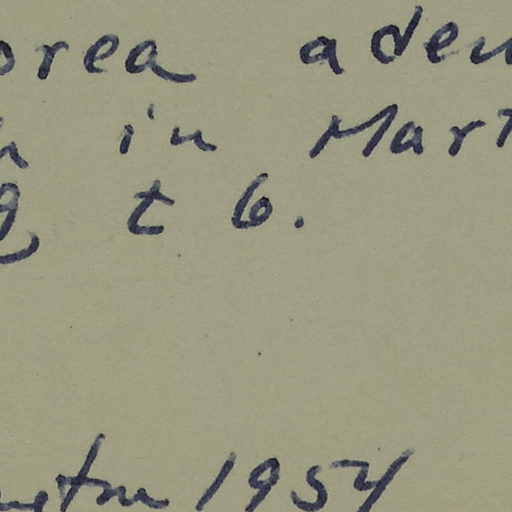 orea aden
h in Mart
9, t 6.
1954